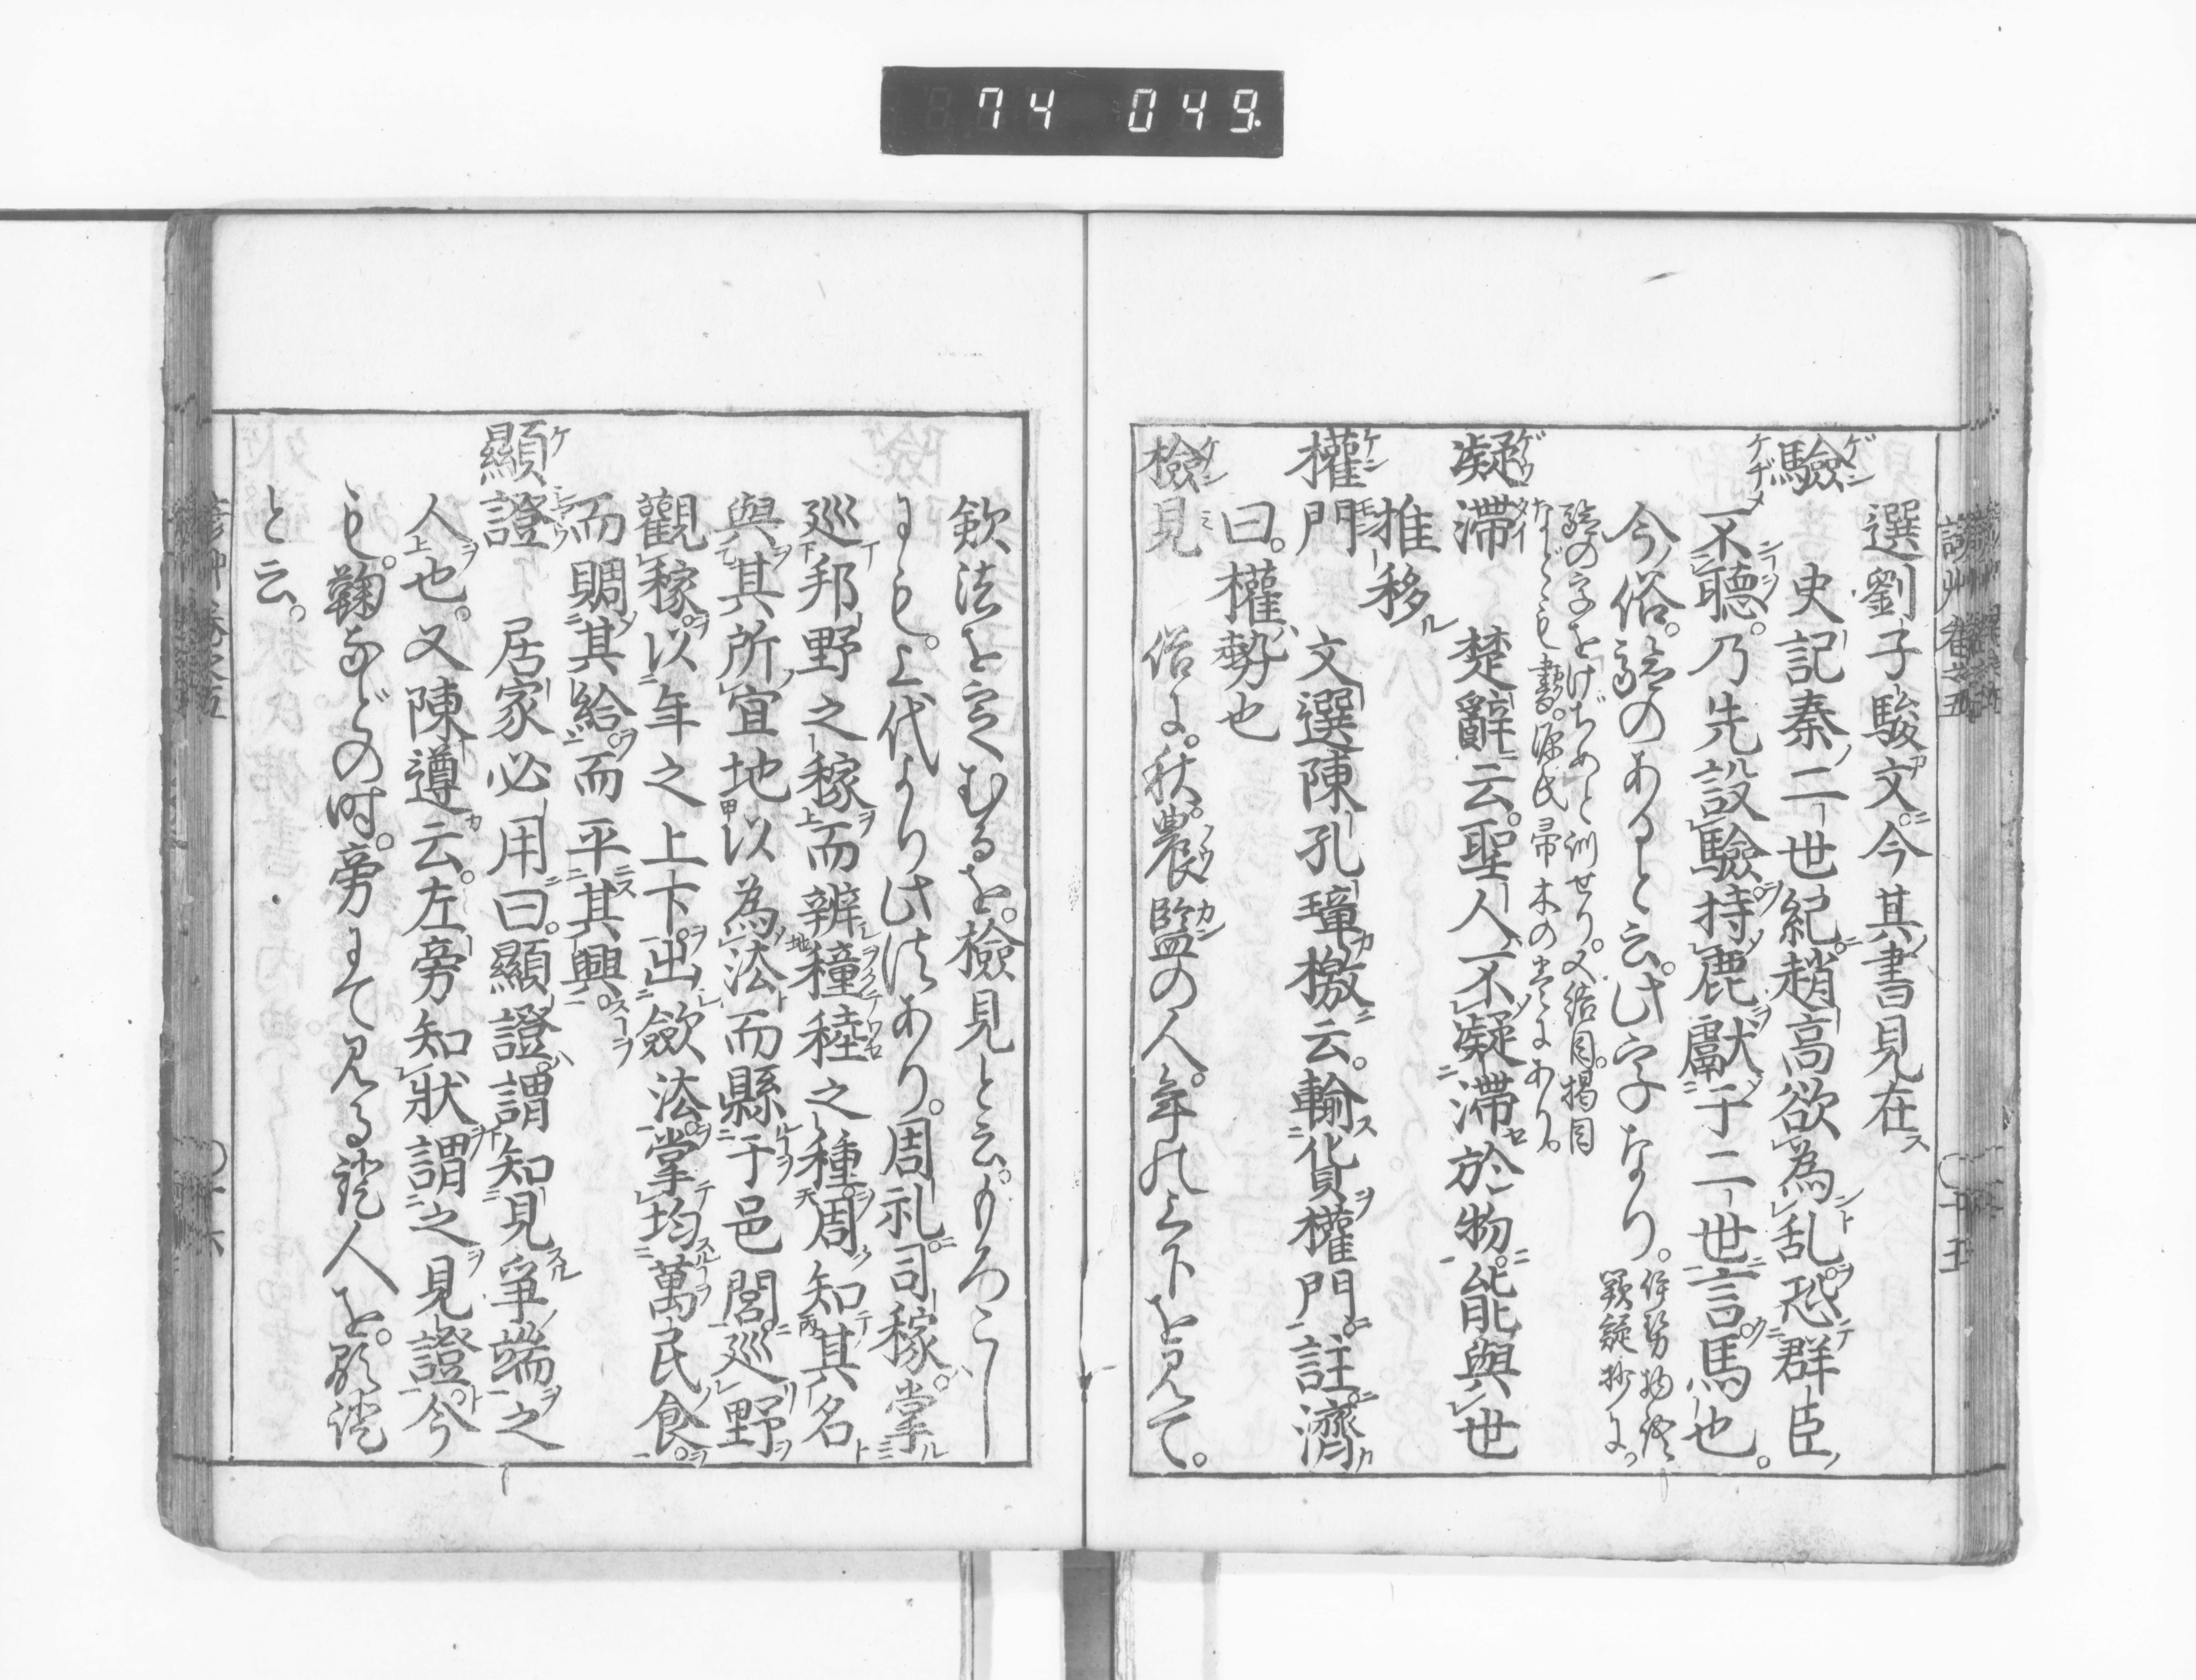 74 049
選劉子駿文。今其書見在
驗 史記秦二世紀。趙高欲為乱。恐群臣
不聽。乃先設驗。持鹿獻于二世。言馬也。
今俗。驗のあると云。此字なり。伊勢物語
闕疑抄に。
驗の字をけぢめと訓せり。又結目。掲目
などゝも書。源氏帚木の巻にあり。
凝滯 楚辭云。聖人不凝滯於物。能與世
推移
權門 文選陳孔璋檄云。輸貨權門。註濟
曰。權勢也
檢見 俗に。秋。農監の人。年の上下を見て。
歛法を定むるを。檢見と云。もろこし
にも。上代より此法あり。周礼。司稼。掌
巡邦野之稼。而辨穜稑之種。周知其名
與其所宜地。以為法。而縣于邑閭。巡野
觀稼。以年之上下。出歛法。掌均萬民食。
而賙其給。而平其興。
顯證 居家必用曰。顯證。謂知見爭端之
人也。又陳遵云。左旁知狀。謂之見證。今
も。鞠などの時。旁にて見る證人を。顯證
と云。
諺艸 卷之五 十六